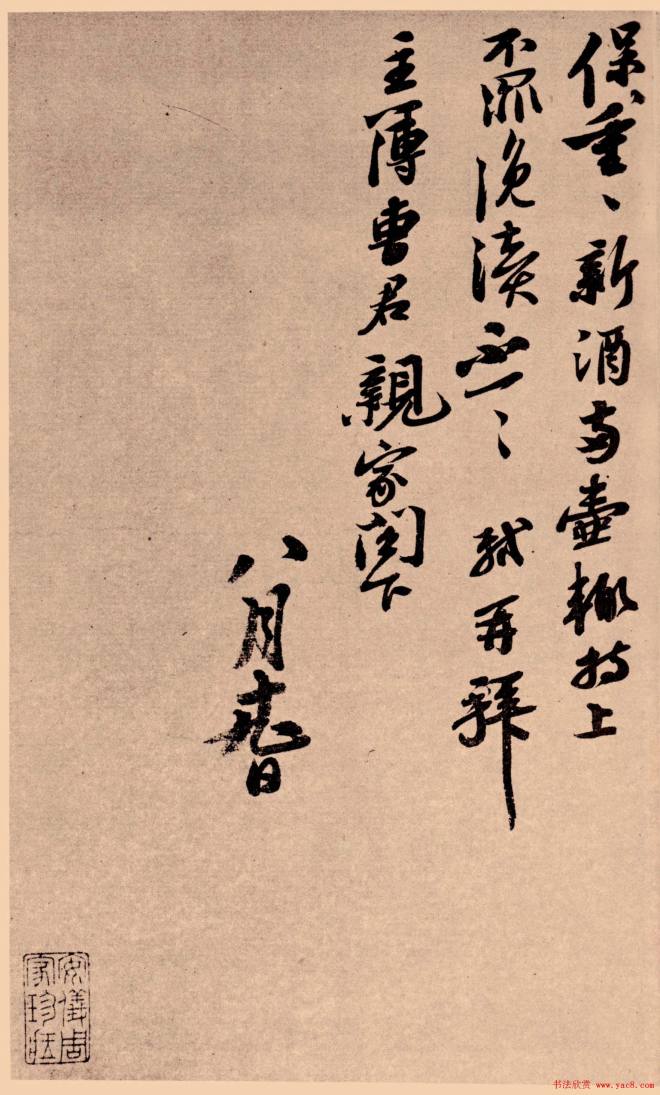 保重、新酒兩壺輒持上
不罪浼瀆不一、軾再拜
主簿曹君親家閣下
八月十九日
安儀周
家珍藏
书法欣赏 www.yac8.com